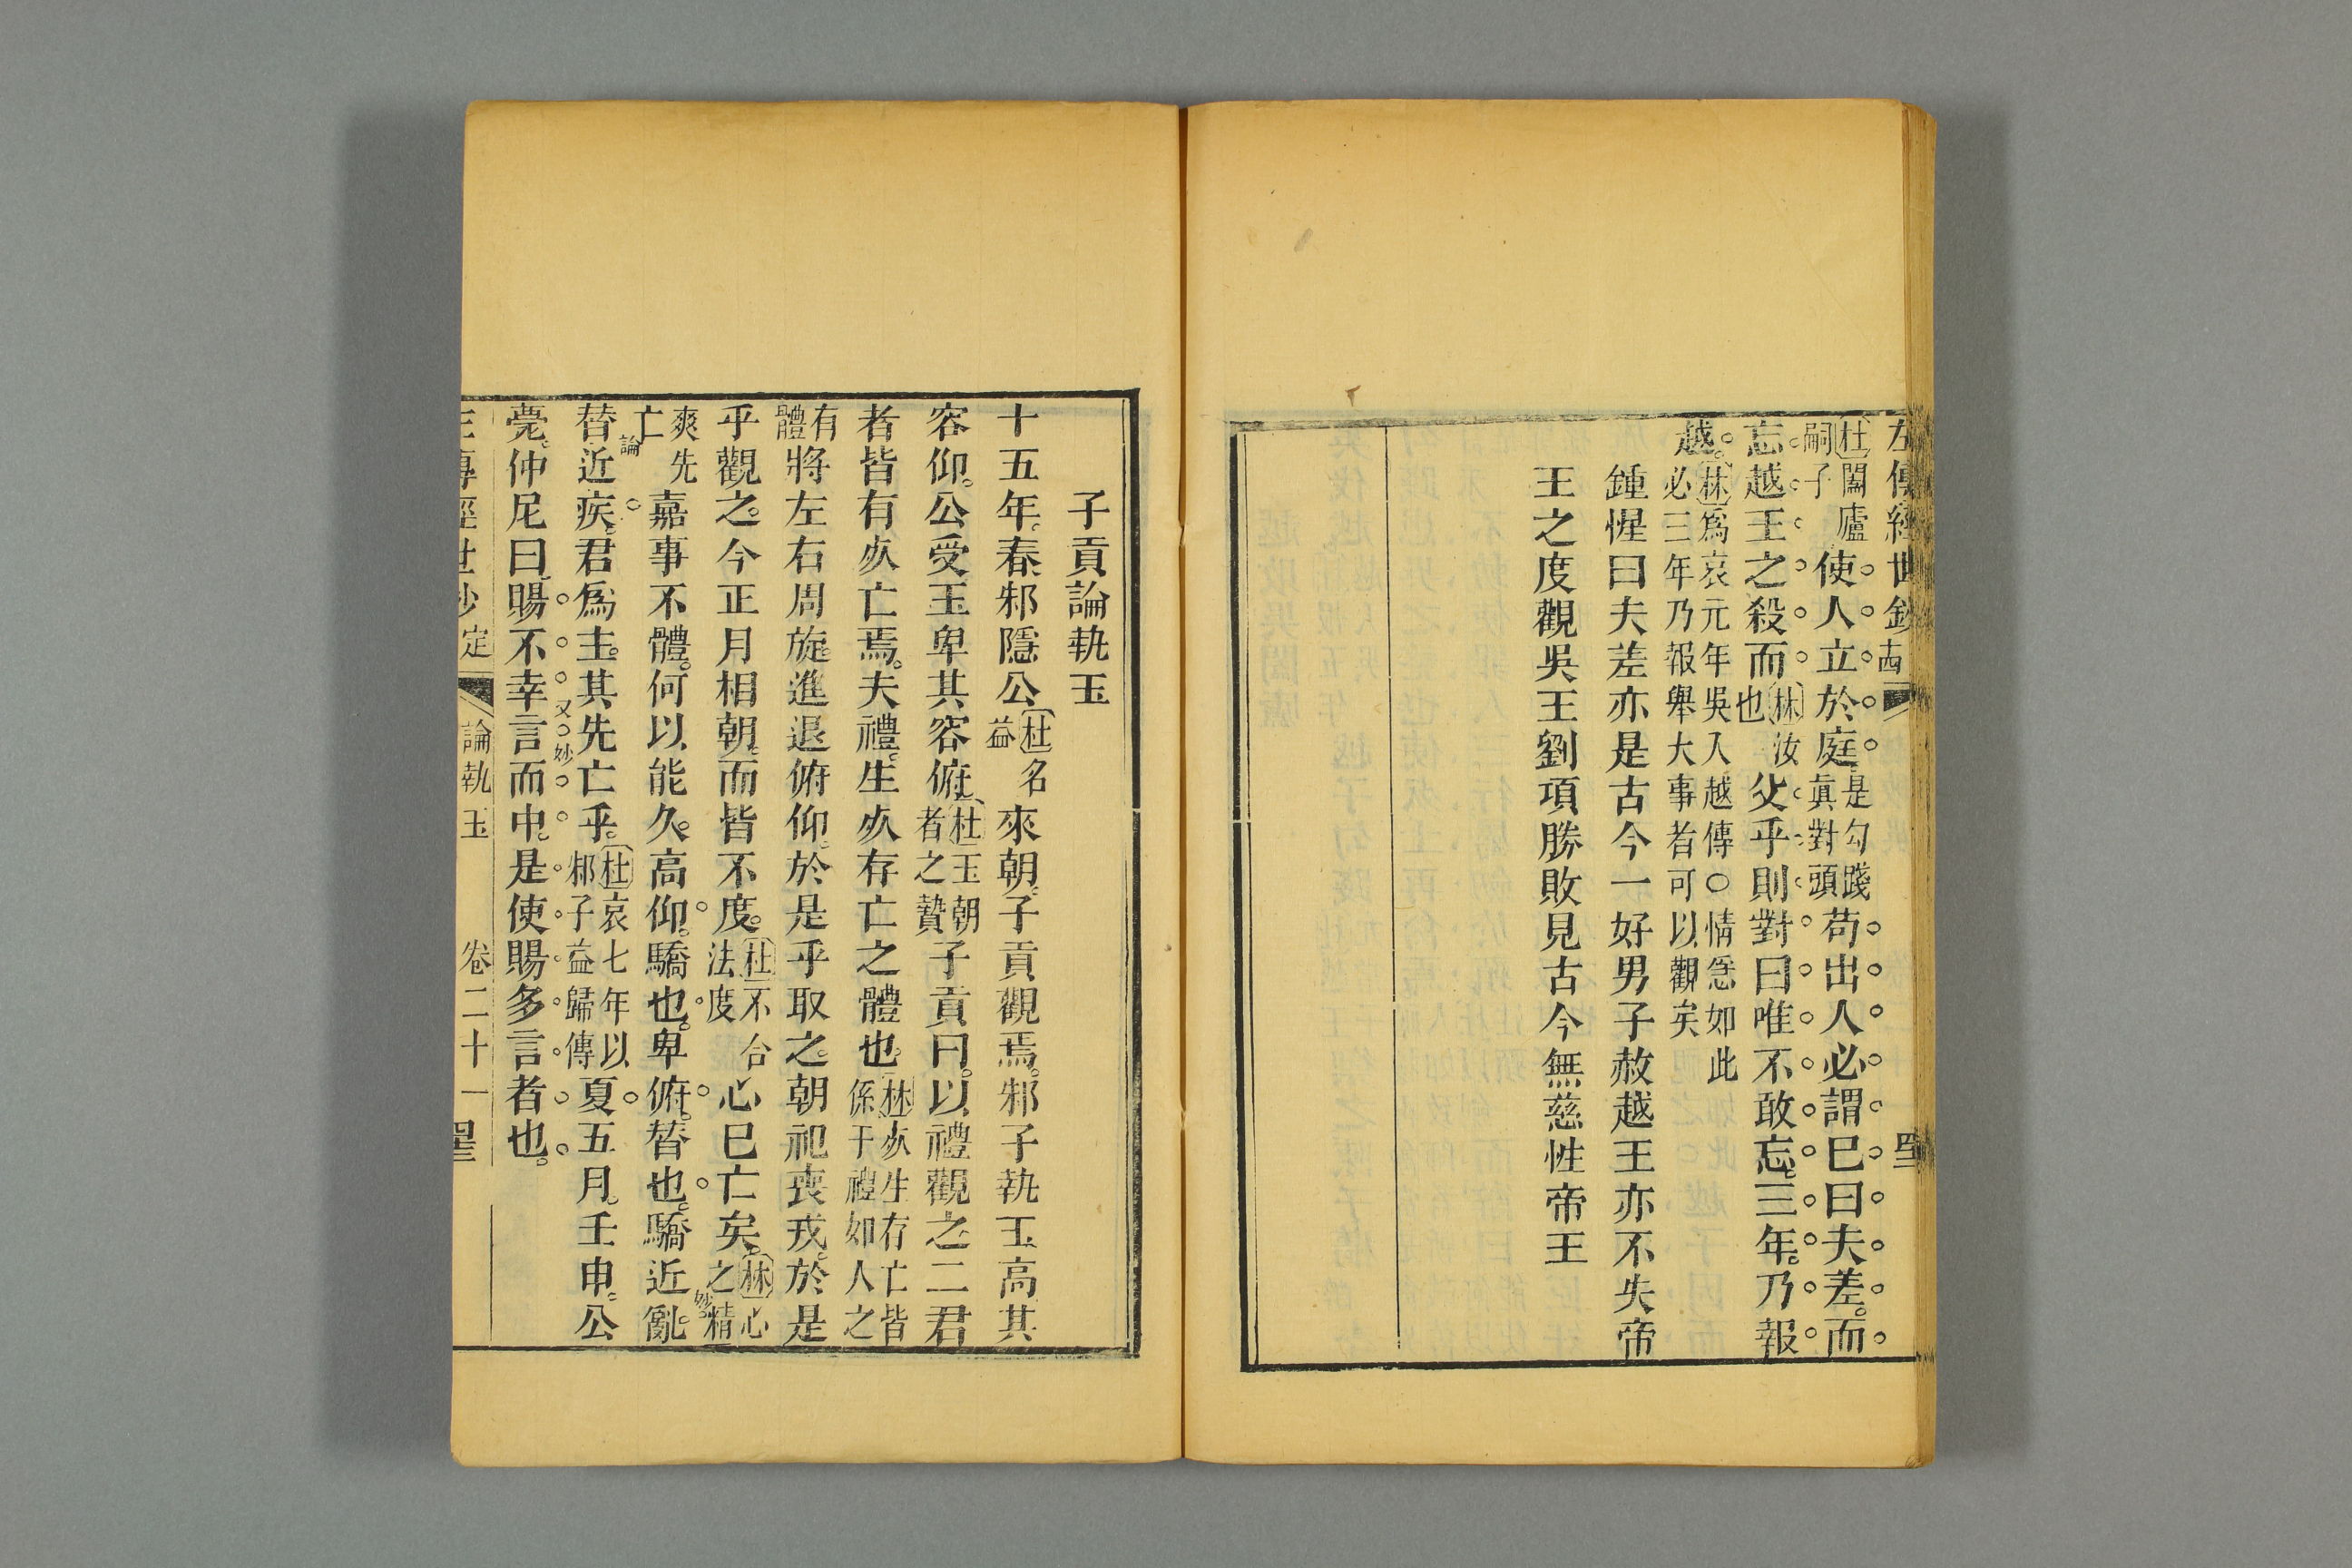 左傳經世鈔
杜闔廬
嗣子
使人立於庭
是勾踐
眞對頭
苟出人必謂巳曰夫差而
忘越王之殺而
林汝
也
父乎則對曰唯不敢忘三年乃報
越
林爲哀元年吳入越傳○情急如此
必三年乃報舉大事者可以觀矣
鍾惺曰夫差亦是古今一好男子赦越王亦不失帝
王之度觀吳王劉項勝敗見古今無慈性帝王
子貢論執玉
十五年春邾隱公
杜名
益
來朝子貢觀焉邾子執玉高其
容仰公受玉卑其容俯
杜玉朝
者之贄
子貢曰以禮觀之二君
者皆有死亡焉夫禮生死存亡之體也
林死生存亡皆
係于禮如人之
有
體
將左右周旋進退俯仰於是乎取之朝祀喪戎於是
乎觀之今正月相朝而皆不度
杜不合
法度
心巳亡矣
林心
之精
妙
爽先
亡
論
嘉事不體何以能久高仰驕也卑俯替也驕近亂
替近疾君爲主其先亡乎
杜哀七年以
邾子益歸傳
夏五月壬申公
薨仲尼曰賜不幸言而中是使賜多言者也
又妙
左傳經世鈔定
論執玉
卷二十一